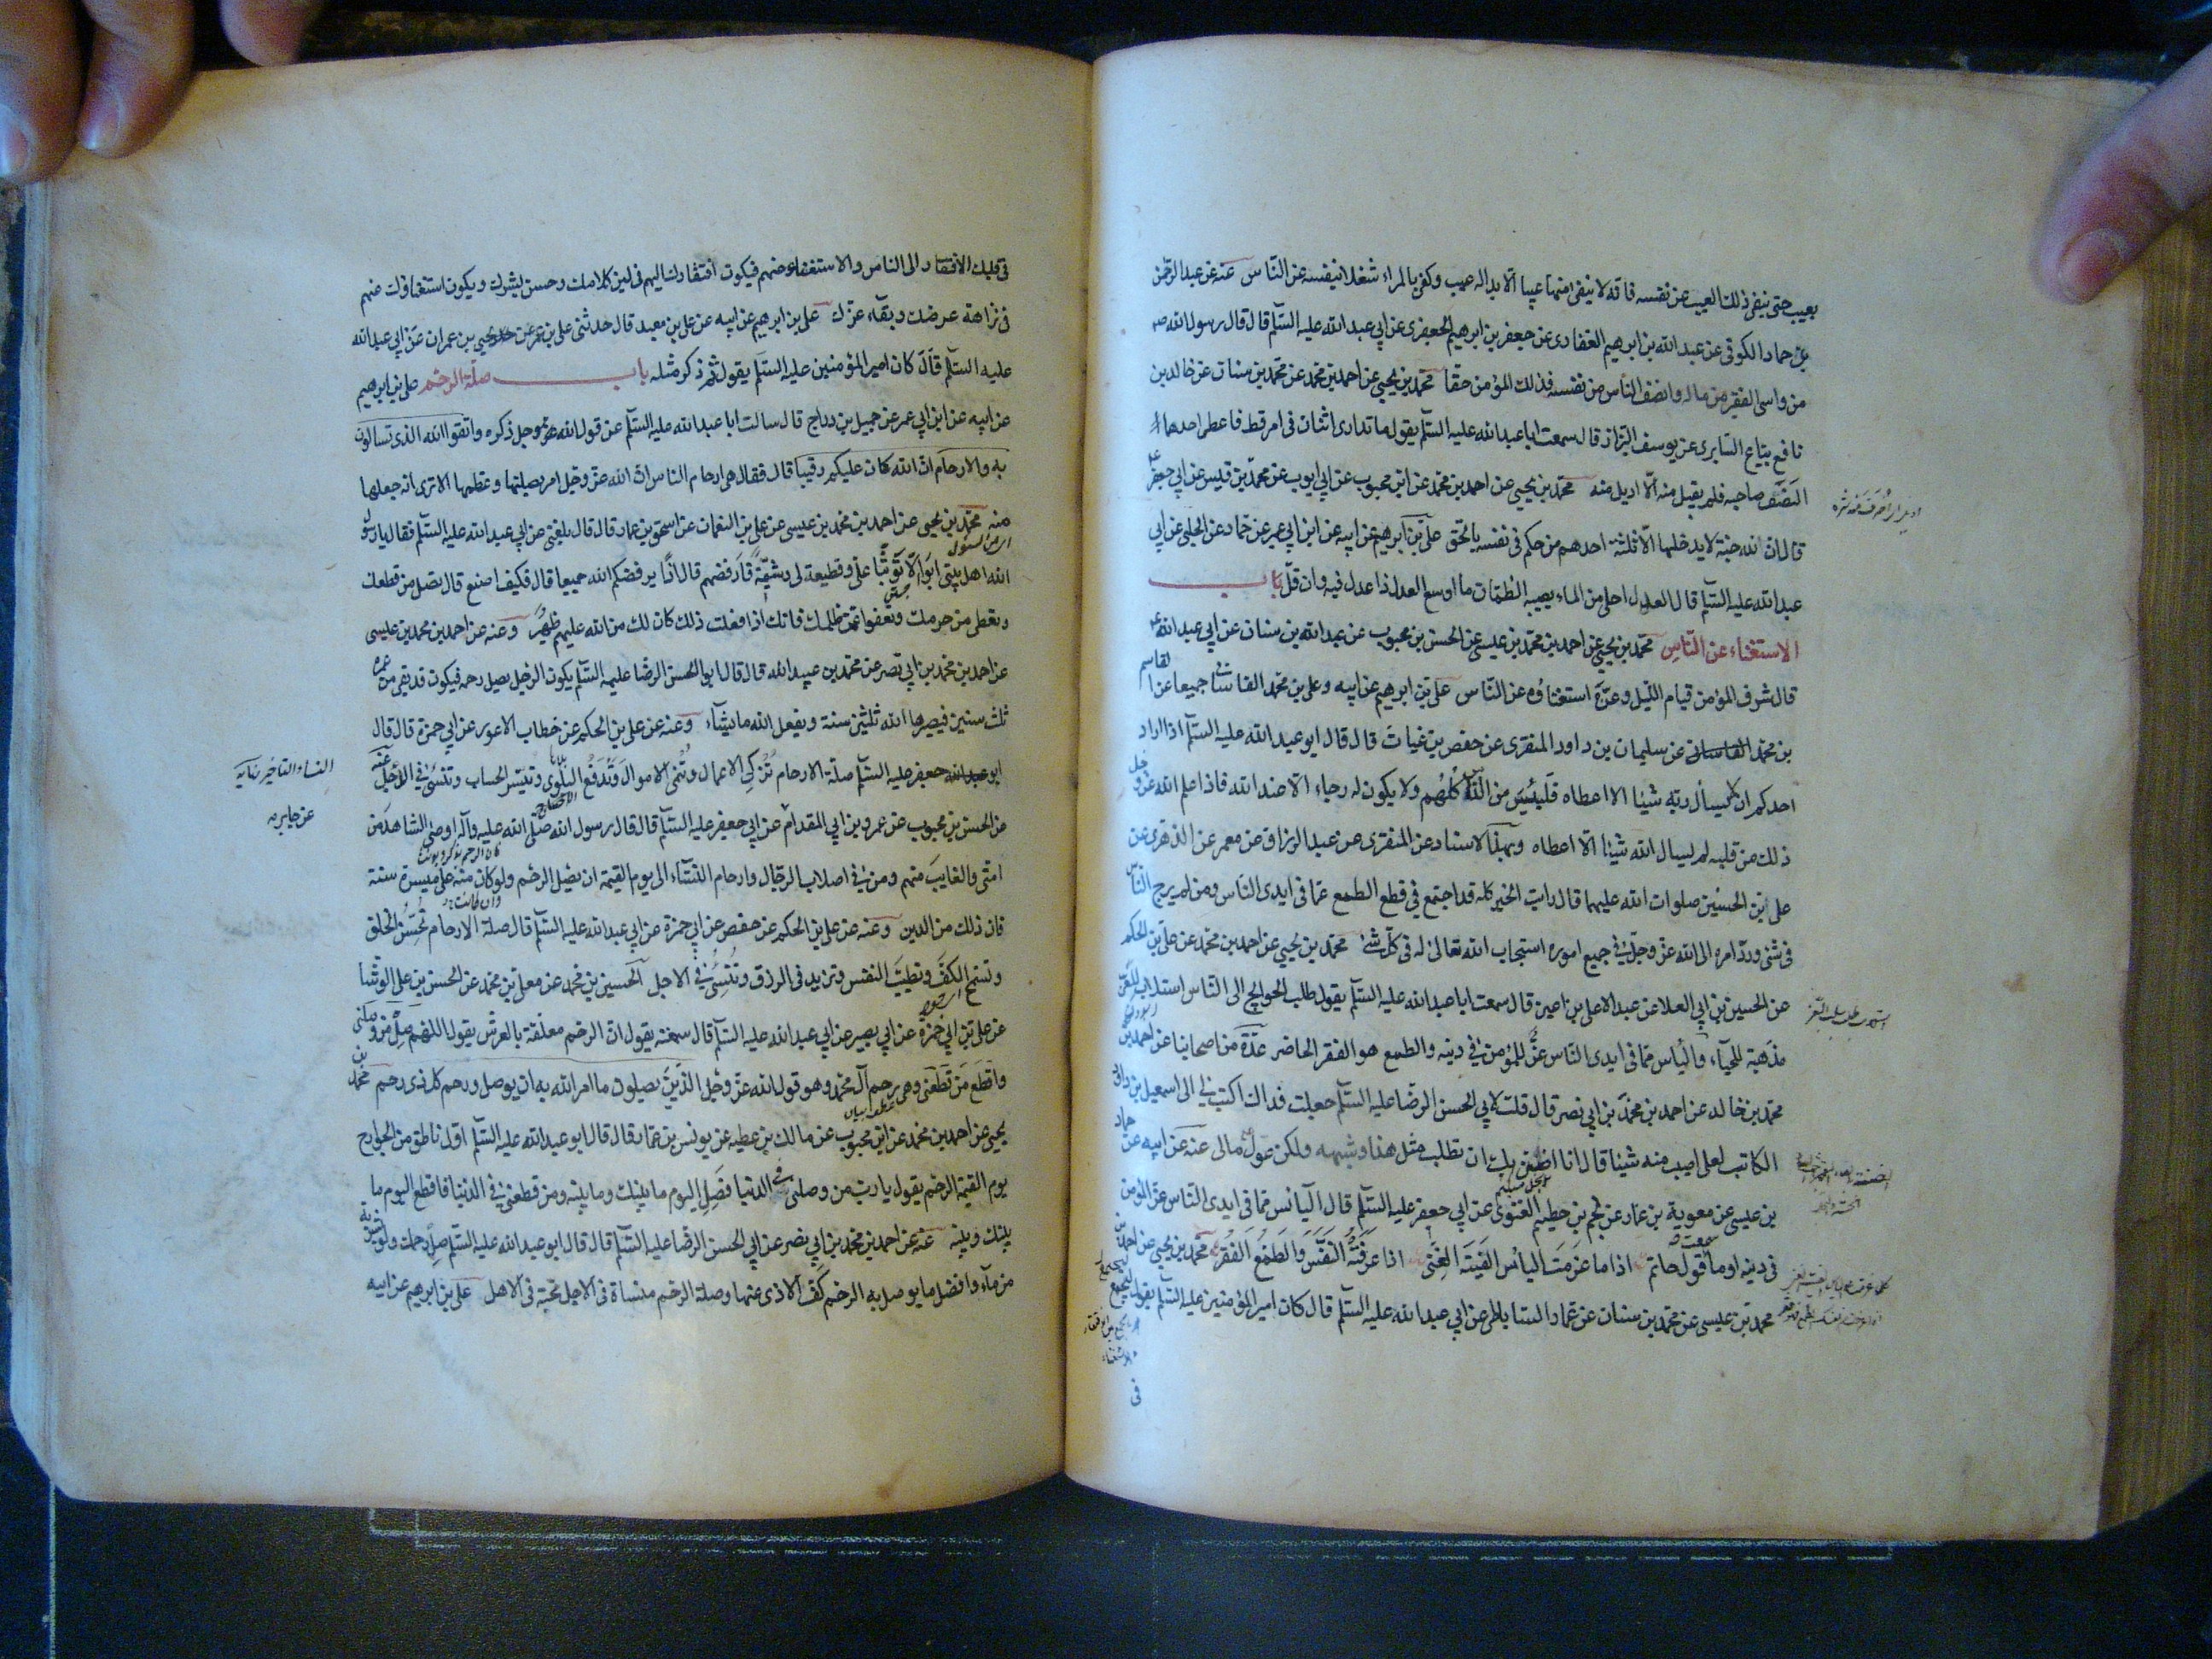 بعيب حتى ينفى ذلك العيب عن نفسه فانه لا ينفى منها عيبا الا بدا له عيب وكفى بالمرء شغلا بنفسه عن الناس عنه عن عبد الرحمن
بن حماد الكوفى عن عبد الله بن ابرهيم الغفارى عن جعفر بن ابرهيم الجعفرى عن ابى عبد الله عليه السلم قال قال رسول الله ص
من واسى الفقير من ماله وانصف الناس من نفسه فذلك المؤمن حقا محمد بن يحيى عن احمد بن محمد عن محمد بن سنان عن خالد بن
نافع بياع السابرى عن يوسف البزاز قال سمعت ابا عبد الله عليه السلم يقول ما تدارى اثنان فى امر قط فاعطى احدهما
النصف صاحبه فلم يقبل منه الا اديل منه محمد بن يحيى عن احمد بن محمد عن ابن محبوب عن ابى ايوب عن محمد بن قيس عن ابى جعفر ع
قال ان لله جنة لا يدخلها الا ثلثة احدهم من حكم فى نفسه بالحق على بن ابرهيم عن ابيه عن ابن ابى عمير عن حماد عن الحلبى عن ابى
عبد الله عليه السلم قال العدل احلى من الماء يصيبه الظمان ما اوسع العدل اذا عدل فيه وان قل باب
الاستغناء عن الناس محمد بن يحيى عن احمد بن محمد بن عيسى عن الحسن بن محبوب عن عبد الله بن سنان عن ابى عبد الله ع
قال شرف المؤمن قيام الليل وعزه استغناؤه عن الناس على بن ابرهيم عن ابيه وعلى بن محمد القاسانى جميعا عن القاسم
بن محمد القاسانى عن سليمان بن داود المنقرى عن حفص بن غياث قال قال ابو عبد الله عليه السلم اذا اراد
احدكم ان لا يسأل ربه شيئا الا اعطاه فلييئس من الناس كلهم ولا يكون له رجاء الا عند الله فاذا علم الله عز وجل
ذلك من قلبه لم يسال الله شيئا الا اعطاه وبهذا الاسناد عن المنقرى عن عبد الرزاق عن معمر عن الزهرى عن
على ابن الحسين صلوات الله عليهما قال رايت الخير كله قد اجتمع فى قطع الطمع عما فى ايدى الناس ومن لم يرج الناس
فى شئ ورد امره الى الله عز وجل فى جميع اموره استجاب الله تعالى له فى كل شئ محمد بن يحيى عن احمد بن محمد عن على بن الحكم
عن الحسين بن ابى العلا عن عبد الاعلى بن اعين قال سمعت ابا عبد الله عليه السلم يقول طلب الحوايج الى الناس استلاب للعز
مذهبة للحياء والياس مما فى ايدى الناس عز للمؤمن فى دينه والطمع هو الفقر الحاضر عدة من اصحابنا عن احمد بن
محمد بن خالد عن احمد بن محمد بن ابى نصر قال قلت لابى الحسن الرضا عليه السلم جعلت فداك اكتب لى الى اسمعيل بن داود
الكاتب لعلى اصيب منه شيئا قال انا اظن بك ان تطلب مثل هذا وشبهه ولكن عول على مالى عنه عن ابيه عن حماد
بن عيسى عن معوية بن عمار عن نجم بن حطيم الغنوى عن ابى جعفر عليه السلم قال اليأس مما فى ايدى الناس عز المؤمن
فى دينه اوما سمعت قول حاتم اذا ما عزمت اليأس الفيته الغنى اذا عرفته النفس والطمع الفقر محمد بن يحيى عن احمد بن
محمد بن عيسى عن محمد بن سنان عن عمار الساباطى عن ابى عبد الله عليه السلم قال كان امير المؤمنين عليه السلم يقول ليجتمع
فى
فى قلبك الافتقار الى الناس والاستغناء عنهم فيكون افتقارك اليهم فى لين كلامك وحسن بشرك ويكون استغناؤك عنهم
فى نزاهة عرضك وبقاء عزك على بن ابرهيم عن ابيه عن على بن معبد قال حدثنى على بن عمر عن يحيى بن عمران عن ابى عبد الله
عليه السلم قال كان امير المؤمنين عليه السلم يقول ثم ذكر مثله باب صلة الرحم على بن ابرهيم
عن ابيه عن ابن ابى عمير عن جميل بن دراج قال سالت ابا عبد الله عليه السلم عن قول الله عز وجل ذكره واتقوا الله الذى تسالون
به والارحام ان الله كان عليكم رقيبا قال فقال هى ارحام الناس ان الله عز وجل امر بصلتها وعظمها الا ترى انه جعلها
منه محمد بن يحيى عن احمد بن محمد بن عيسى عن على بن النعمان عن اسحق بن عمار قال قال بلغنى عن ابى عبد الله عليه السلم فقال يا رسول
الله اهل بيتى ابوا الا توثبا على وقطيعة لى وشتيمة فارفضهم قال اذا يرفضكم الله جميعا قال فكيف اصنع قال تصل من قطعك
وتعطى من حرمك وتعفوا عمن ظلمك فانك اذا فعلت ذلك كان لك من الله عليهم ظهير وعنه عن احمد بن محمد بن عيسى
عن احمد بن محمد بن ابى نصر عن محمد بن عبيد الله قال قال ابو الحسن الرضا عليه السلم يكون الرجل يصل رحمه فيكون قد بقى من عمره
ثلث سنين فيصيرها الله ثلثين سنة ويفعل الله ما يشاء وعنه عن على بن الحكم عن خطاب الاعور عن ابى حمزة قال قال
ابو جعفر عليه السلم صلة الارحام تزكى الاعمال وتنمى الاموال وتدفع البلوى وتيسر الحساب وتنسئ فى الاجل عنه
عن الحسن بن محبوب عن عمرو بن ابى المقدام عن ابى جعفر عليه السلم قال قال رسول الله صلى الله عليه وآله اوصى الشاهد من
امتى والغايب منهم ومن فى اصلاب الرجال وارحام النساء الى يوم القيمة ان يصل الرحم ولو كان منه على مسيرة سنة
فان ذلك من الدين وعنه عن على بن الحكم عن حفص عن ابى حمزة عن ابى عبد الله عليه السلم قال صلة الارحام تحسن الخلق
وتسمح الكف وتطيب النفس وتزيد فى الرزق وتنسئ فى الاجل الحسين بن محمد عن معلى بن محمد عن الحسن بن على الوشا
عن على بن ابى حمزة عن ابى بصير عن ابى عبد الله عليه السلم قال سمعته يقول ان الرحم معلقة بالعرش يقول اللهم صل من وصلنى
واقطع من قطعنى وهى رحم آل محمد وهو قول الله عز وجل الذين يصلون ما امر الله به ان يوصل ورحم كل ذى رحم محمد بن
يحيى عن احمد بن محمد عن ابن محبوب عن مالك بن عطيه عن يونس بن عمار قال قال ابو عبد الله عليه السلم اول ناطق من الجوارح
يوم القيمة الرحم يقول يا رب من وصلنى فى الدنيا فصل اليوم ما بينك وما بينه ومن قطعنى فى الدنيا فاقطع اليوم ما
بينك وبينه عنه عن احمد بن محمد بن ابى نصر عن ابى الحسن الرضا عليه السلم قال قال ابو عبد الله عليه السلم صل رحمك ولو بشربة
من ماء وافضل ما يوصل به الرحم كف الاذى عنها وصلة الرحم منساة فى الاجل محبة فى الاهل على بن ابرهيم عن ابيه